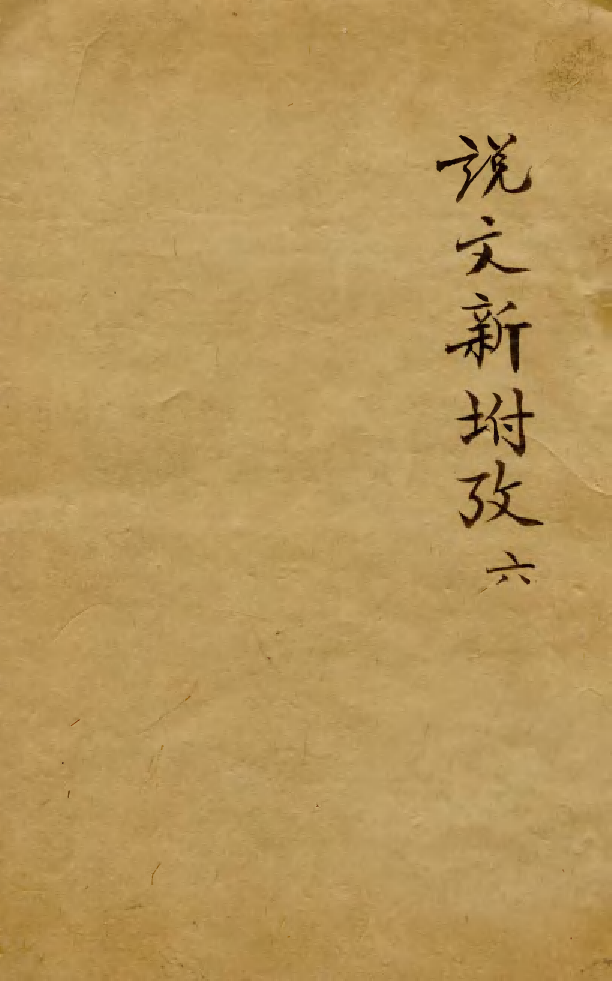 說文新坿攷 六